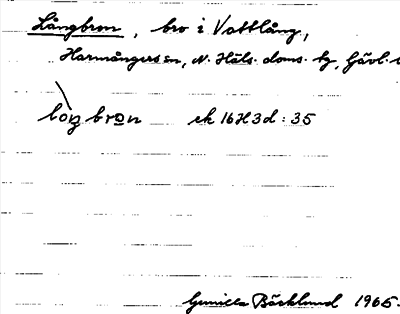 Långbron, bro i Vattlång,
Harmångers sn, N. Häls. doms. kg, Gävl. l
lòŋ brọn ek 16H3d:35
Gunilla Bäcklund 1965.